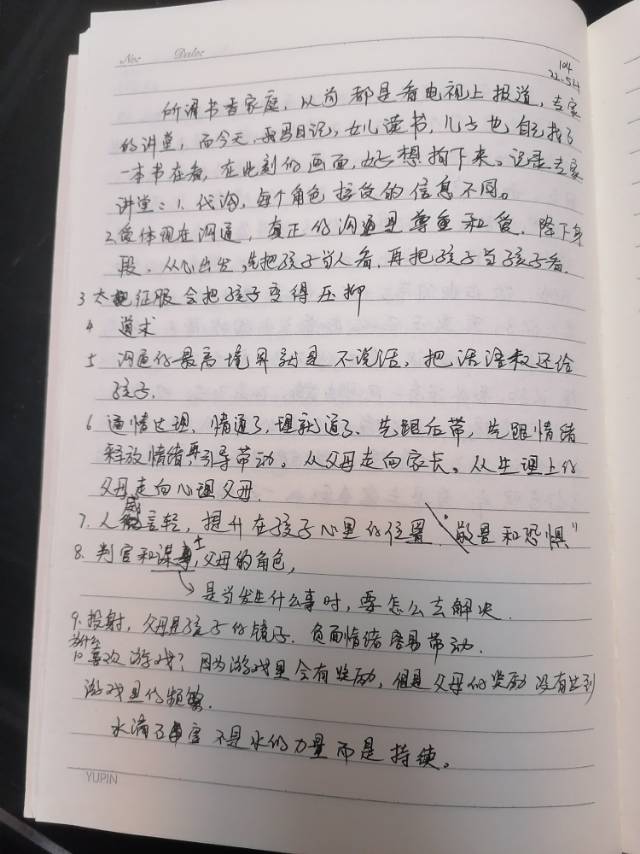 No: Date:
104
22.54
所谓书香家庭，以前都是看电视上报道，专家
的讲堂，而今天，我写日记，女儿读书，儿子也自己找了
一本书在看，在此刻的画面，好想拍下来。记录专家
讲堂：1. 代沟，每个角色接收的信息不同。
2. 爱体现在沟通，真正的沟通是尊重和爱，降下身
段，从心出发，先把孩子当人看，再把孩子当孩子看。
3 太征服会把孩子变得压抑
4 道术
5 沟通的最高境界就是不说话，把话语权还给
孩子.
6 通情达理，情通了，理就通了. 先跟后带，先跟情绪
释放情绪，再引导带动。从父母走向家长。从生理上的
父母走向心理父母.
7. 人微言轻，提升在孩子心里的位置. "敬畏和恐惧"
8. 判官和谋士，父母的角色，
→是当发生什么事时，要怎么去解决.
9. 投射，父母是孩子的镜子. 负面情绪容易带动.
为什么
10 喜欢游戏？因为游戏里会有奖励，但是父母的奖励没有达到
游戏里的频率.
水滴石穿不是水的力量而是持续。
YUPIN